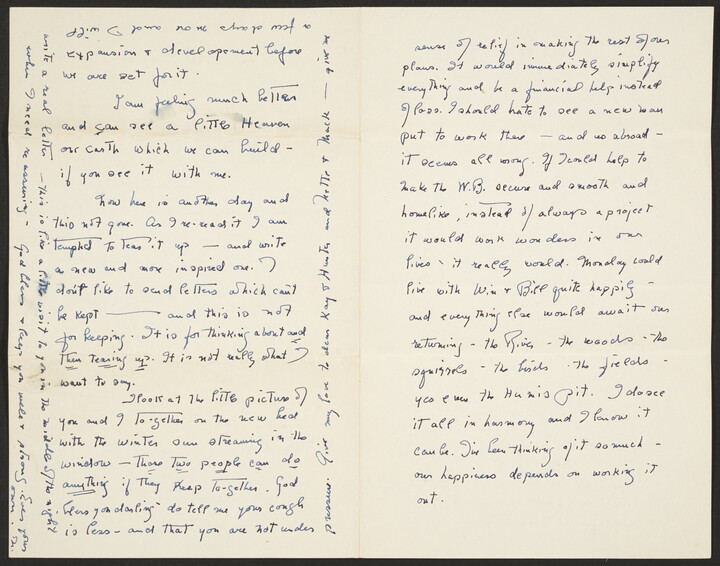 expansion & developement before
we are set for it.
I am feeling much better
and can see a little Heaven
on earth which we can build -
if you see it with me.
Now here is another day and
this not gone. As I re-read it I am
tempted to tear it up — and write
a new and more inspired one. I
don't like to send letters which can't
be kept — and this is not
for keeping. It is for thinking about and
then tearing up. It is not really what I
want to say.
I look at the little picture of
you and I to-gether on the new bed
with the winter sun streaming in the
window — those two people can do
anything if they keep to-gether. God
bless you darling - do tell me your cough
is less - and that you are not under
pressure. Give my love to dear Kay & Hunter and & Mack —
a few days now and I will
write a real letter - this is like a little visit to you in the middle of the night
when I need re assuring - God bless & keep you well & strong. Ever your
own.
sense of relief in making the rest of our
plans. It would immediately simplify
everything and be a financial help instead
of loss. I should hate to see a new man
put to work there — and us abroad -
it seems all wrong. If I could help to
make the W.B. secure and smooth and
homelike, instead of always a project
it would work wonders in our
lives - it really would. Monday could
live with Win & Bill quite happily -
and everything else would await our
returning - the River - the woods - the
squirrels - the birds - the fields -
yes even the Humis pit. I do see
it all in harmony and I know it
can be. I've been thinking of it so much -
our happiness depends on working it
out.